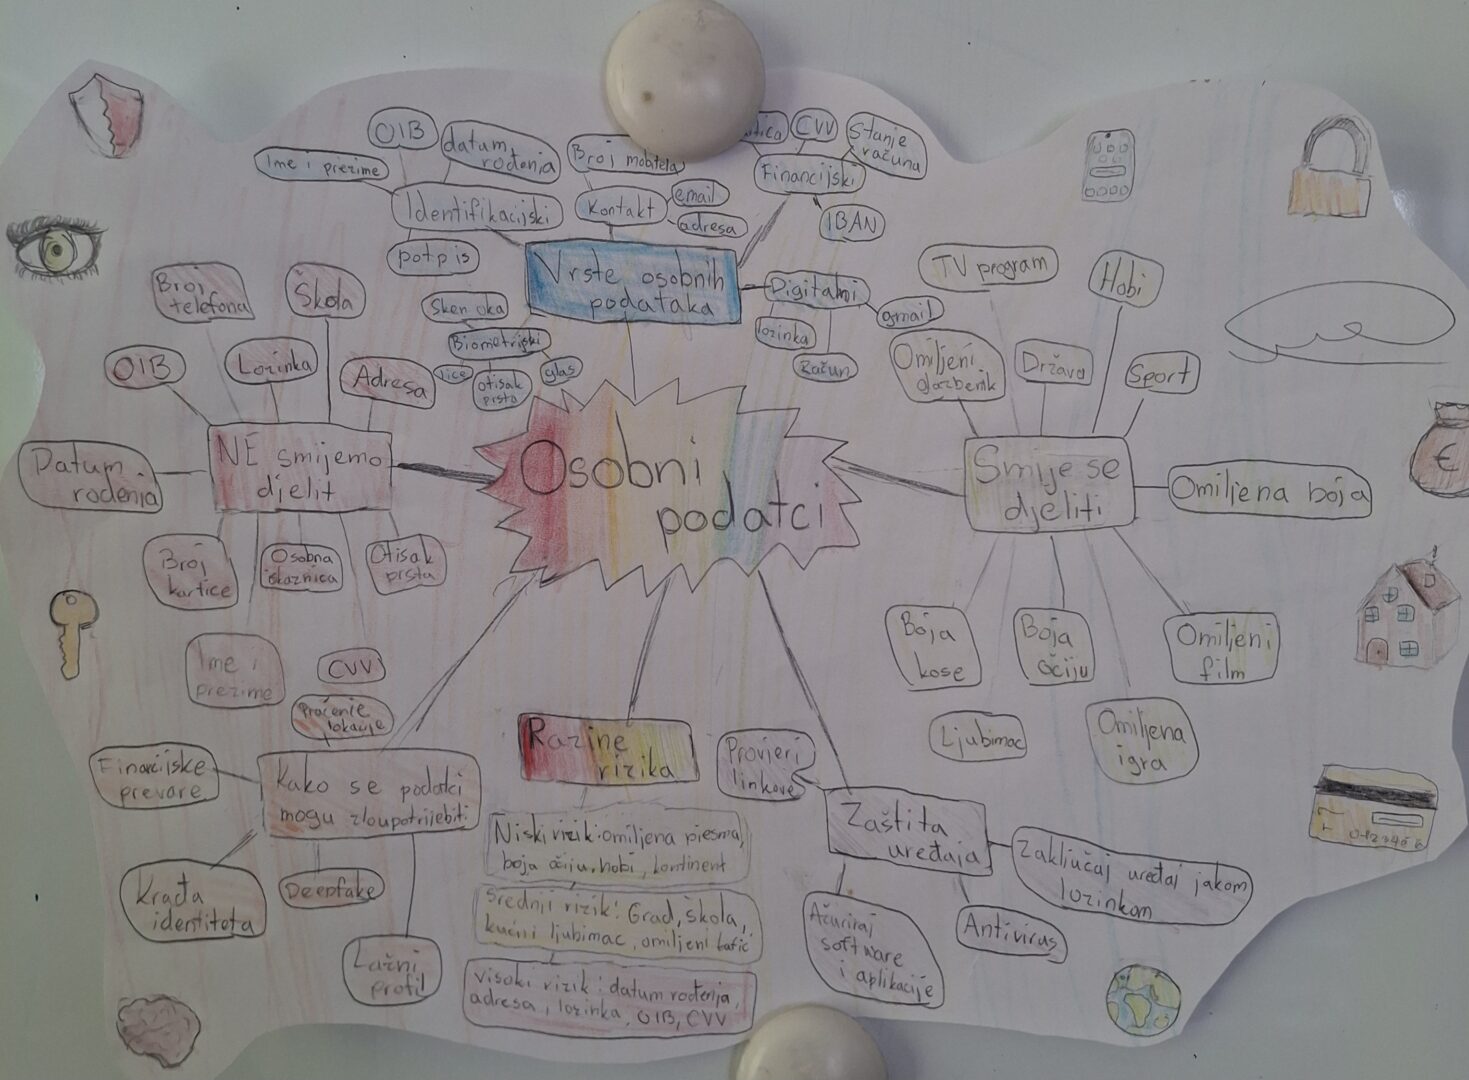 Osobni
podatci
Vrste osobnih
podataka
Identifikacijski
Ime i prezime
OIB
datum
rođenja
potpis
Kontakt
Broj mobitela
email
adresa
Financijski
CVV
Stanje
računa
IBAN
Digitalni
lozinka
Račun
gmail
Biometrijski
Sken oka
lice
otisak
prsta
glas
NE smijemo
djelit
Broj
telefona
Škola
OIB
Lozinka
Adresa
Datum
rođenja
Broj
kartice
Osobna
iskaznica
Otisak
prsta
Ime i
prezime
CVV
Smije se
djeliti
TV program
Hobi
Omiljeni
glazbenik
Država
Sport
Omiljena boja
Boja
kose
Boja
očiju
Omiljeni
film
Ljubimac
Omiljena
igra
Kako se podatci
mogu zloupotrijebiti
Praćenje
lokacije
Financijske
prevare
Krađa
identiteta
Deepfake
Lažni
profil
Razine
rizika
Niski rizik: omiljena pjesma,
boja očiju, hobi, kontinent
Srednji rizik: Grad, škola,
kućni ljubimac, omiljeni kafić
visoki rizik: datum rođenja,
adresa, lozinka, OIB, CVV
Zaštita
uređaja
Provjeri
linkove
Zaključaj uređaj jakom
lozinkom
Antivirus
Ažuriraj
software
i aplikacije
€